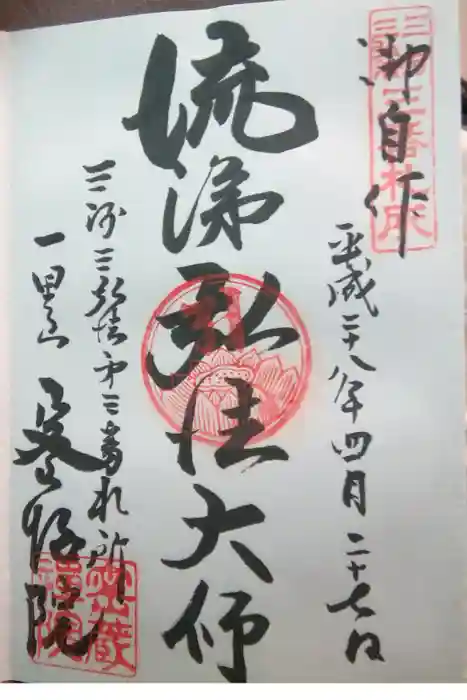 御自作
平成二十八年四月二十七日
流涕弘法大師
三河三弘法第三番札所
一里山
密蔵院